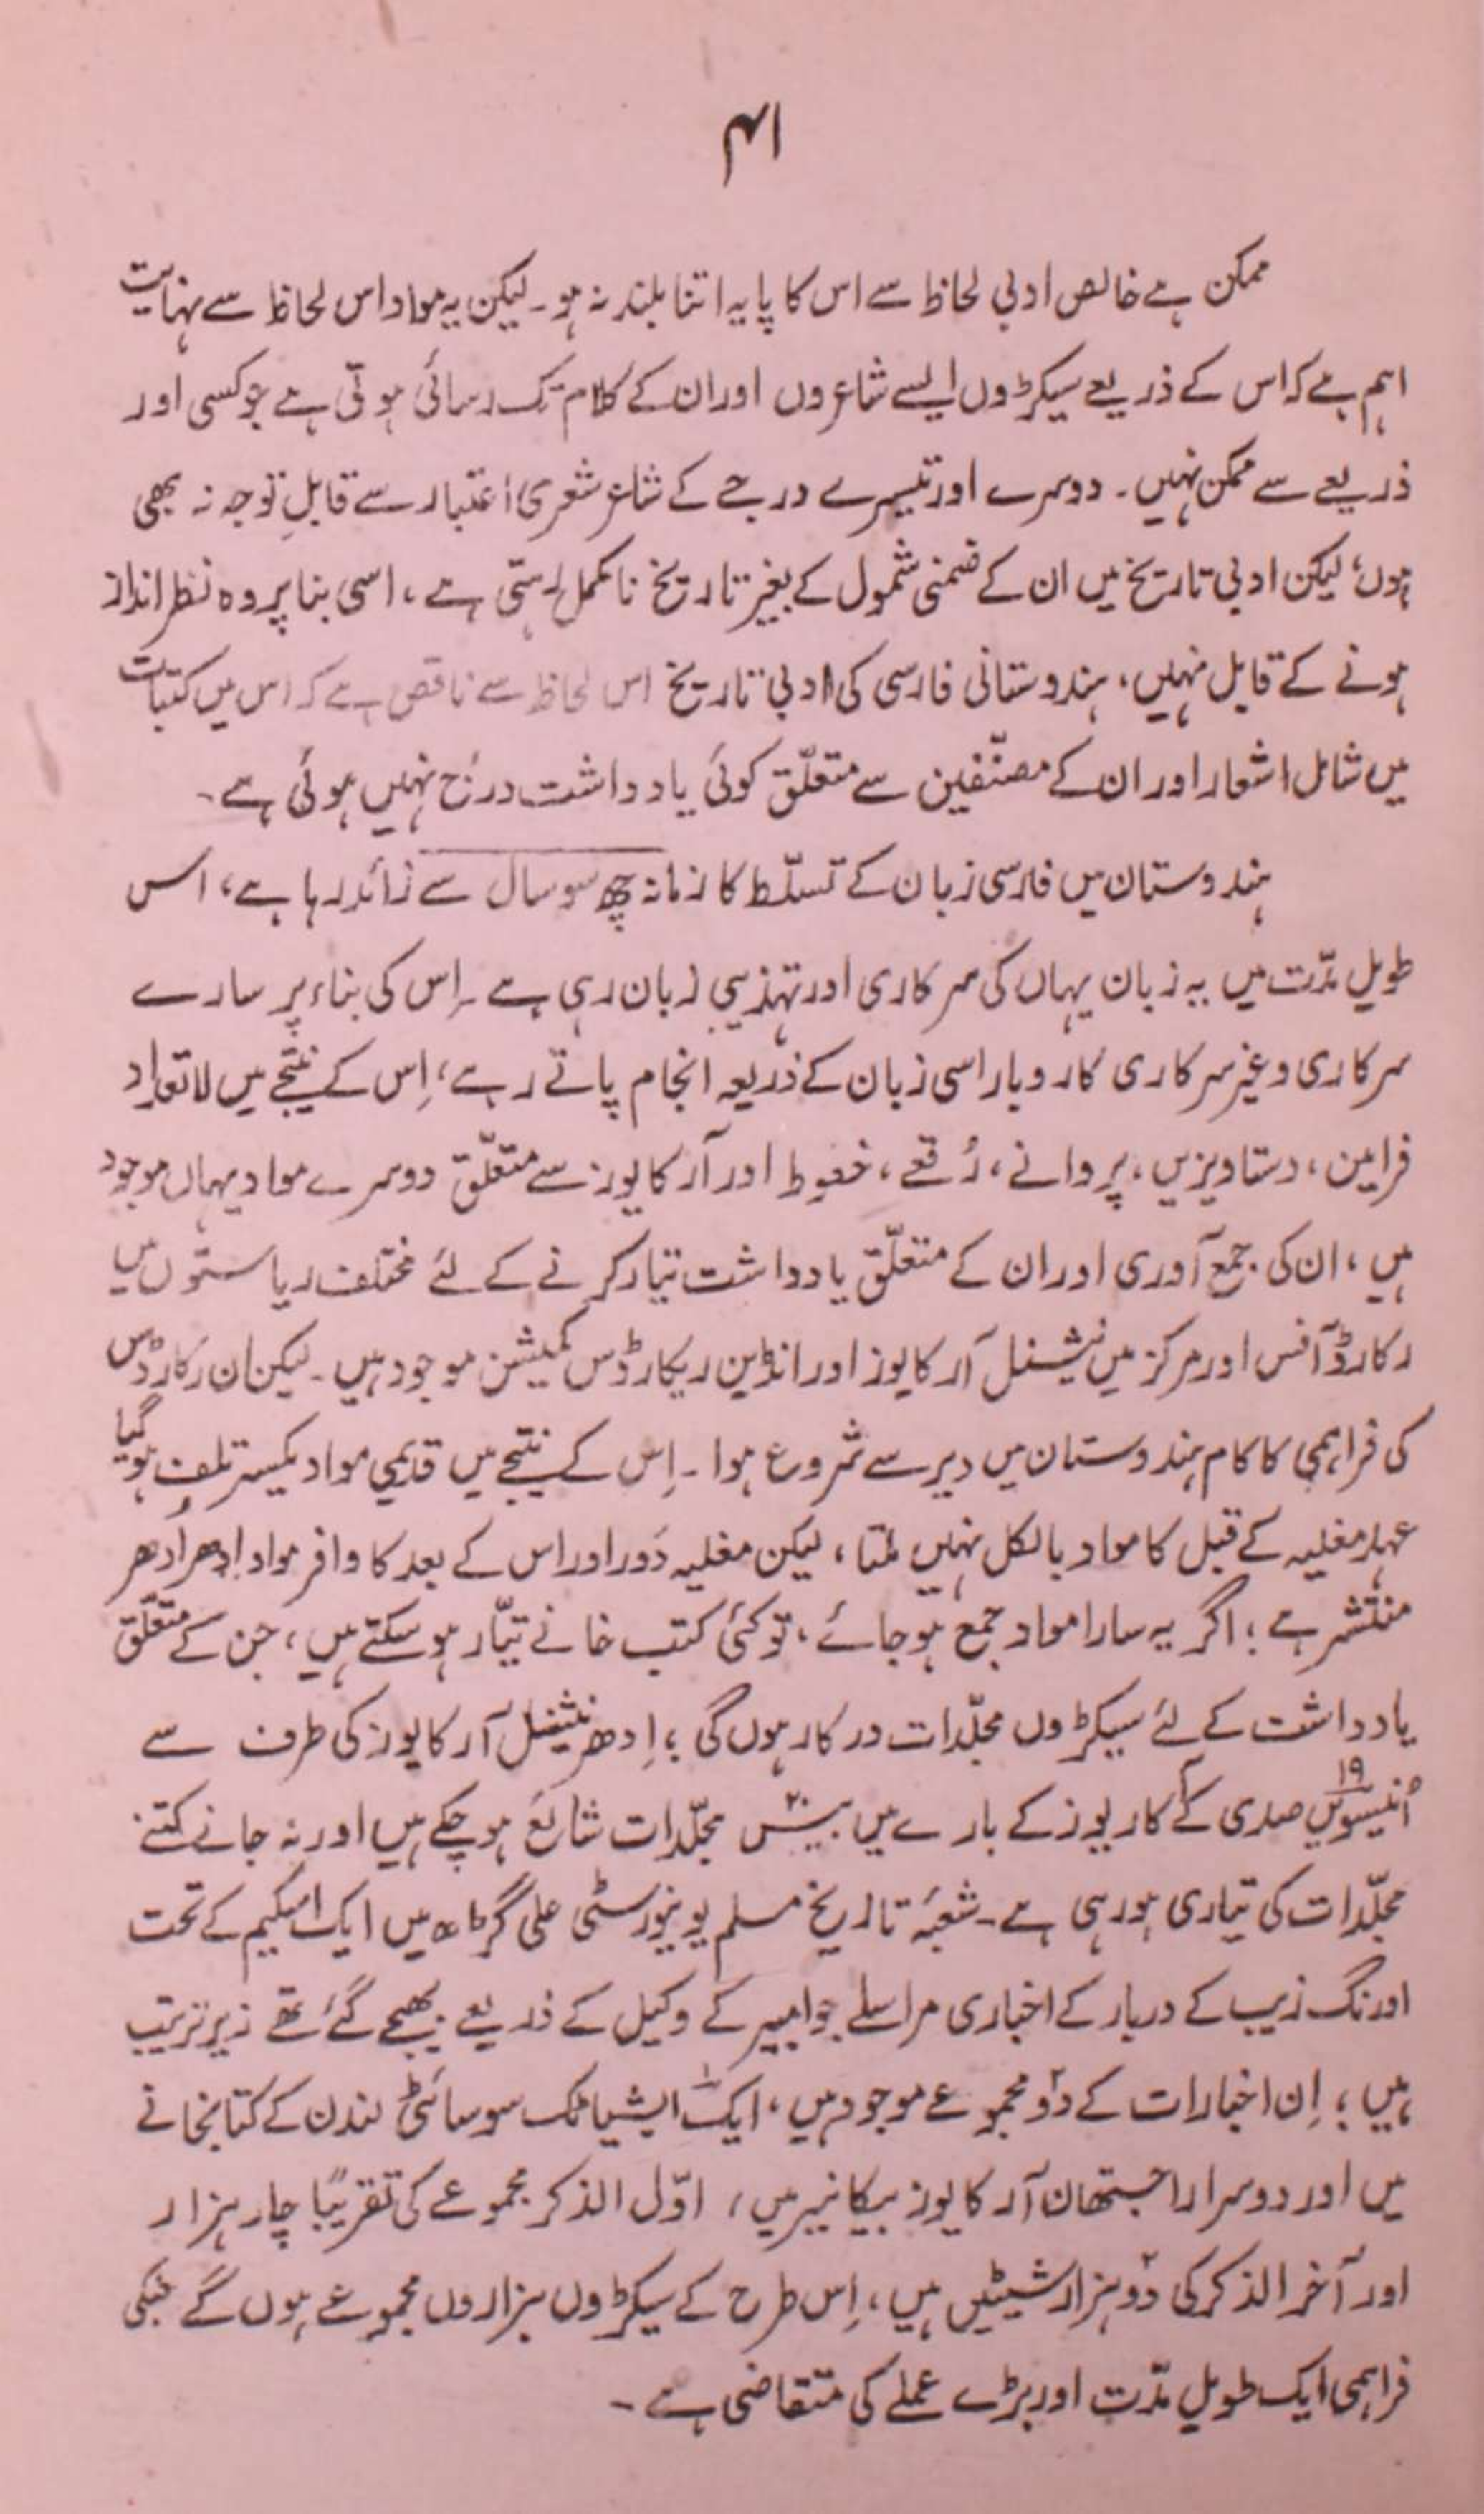 ۴۱
ممکن ہے خالص ادبی لحاظ سے اس کا پایہ اتنا بلند نہ ہو۔ لیکن یہ مواد اس لحاظ سے نہایت
اہم ہے کہ اس کے ذریعے سیکڑوں ایسے شاعروں اور ان کے کلام تک رسائی ہوتی ہے جو کسی اور
ذریعے سے ممکن نہیں۔ دوسرے اور تیسرے درجے کے شاعر شعری اعتبار سے قابلِ توجہ نہ بھی
ہوں؛ لیکن ادبی تاریخ میں ان کے ضمنی شمول کے بغیر تاریخ نامکمل رہتی ہے، اسی بنا پر وہ نظر انداز
ہونے کے قابل نہیں، ہندوستانی فارسی کی ادبی تاریخ اس لحاظ سے ناقص ہے کہ اس میں کتبات
میں شامل اشعار اور ان کے مصنّفین سے متعلّق کوئی یادداشت درج نہیں ہوئی ہے۔
ہندوستان میں فارسی زبان کے تسلّط کا زمانہ چھ سو سال سے زائد رہا ہے، اس
طویل مدّت میں یہ زبان یہاں کی سرکاری اور تہذیبی زبان رہی ہے۔ اِس کی بناء پر سارے
سرکاری و غیر سرکاری کاروبار اسی زبان کے ذریعہ انجام پاتے رہے، اِس کے نتیجے میں لاتعداد
فرامین، دستاویزیں، پروانے، رُقعے، خطوط اور آرکایوز سے متعلّق دوسرے مواد یہاں موجود
ہیں، ان کی جمع آوری اور ان کے متعلّق یادداشت تیار کرنے کے لئے مختلف ریاستوں میں
رکارڈ آفس اور مرکز میں نیشنل آرکایوز اور انڈین ریکارڈس کمیشن موجود ہیں۔ لیکن ان رکارڈس
کی فراہمی کا کام ہندوستان میں دیر سے شروع ہوا۔ اِس کے نتیجے میں قدیمی مواد یکسر تلف ہوگیا
عہدِ مغلیہ کے قبل کا مواد بالکل نہیں ملتا، لیکن مغلیہ دَور اور اس کے بعد کا وافر مواد اِدھر اُدھر
منتشر ہے؛ اگر یہ سارا مواد جمع ہو جائے، تو کئی کتب خانے تیّار ہو سکتے ہیں، جن کے متعلّق
یادداشت کے لئے سیکڑوں مجلّدات درکار ہوں گی؛ اِدھر نیشنل آرکایوز کی طرف سے
اُنیسویں ۱۹ صدی کے آرکایوز کے بارے میں بیس ۲۰ مجلّدات شائع ہو چکے ہیں اور نہ جانے کتنے
مجلّدات کی تیاری ہو رہی ہے۔ شعبۂ تاریخ مسلم یونیورسٹی علی گڑھ میں ایک اسکیم کے تحت
اورنگ زیب کے دربار کے اخباری مراسلے جو امبیر کے وکیل کے ذریعے بھیجے گئے تھے زیرِ ترتیب
ہیں؛ اِن اخبارات کے دو۲ مجموعے موجود ہیں، ایک۱ ایشیاٹک سوسائٹی لندن کے کتابخانے
میں اور دوسرا راجستھان آرکایوز بیکانیر میں، اوّل الذکر مجموعے کی تقریبًا چار ہزار
اور آخر الذکر کی دو۲ ہزار شیٹیں ہیں، اِس طرح کے سیکڑوں ہزاروں مجموعے ہوں گے جنکی
فراہمی ایک طویل مدّت اور بڑے عملے کی متقاضی ہے۔